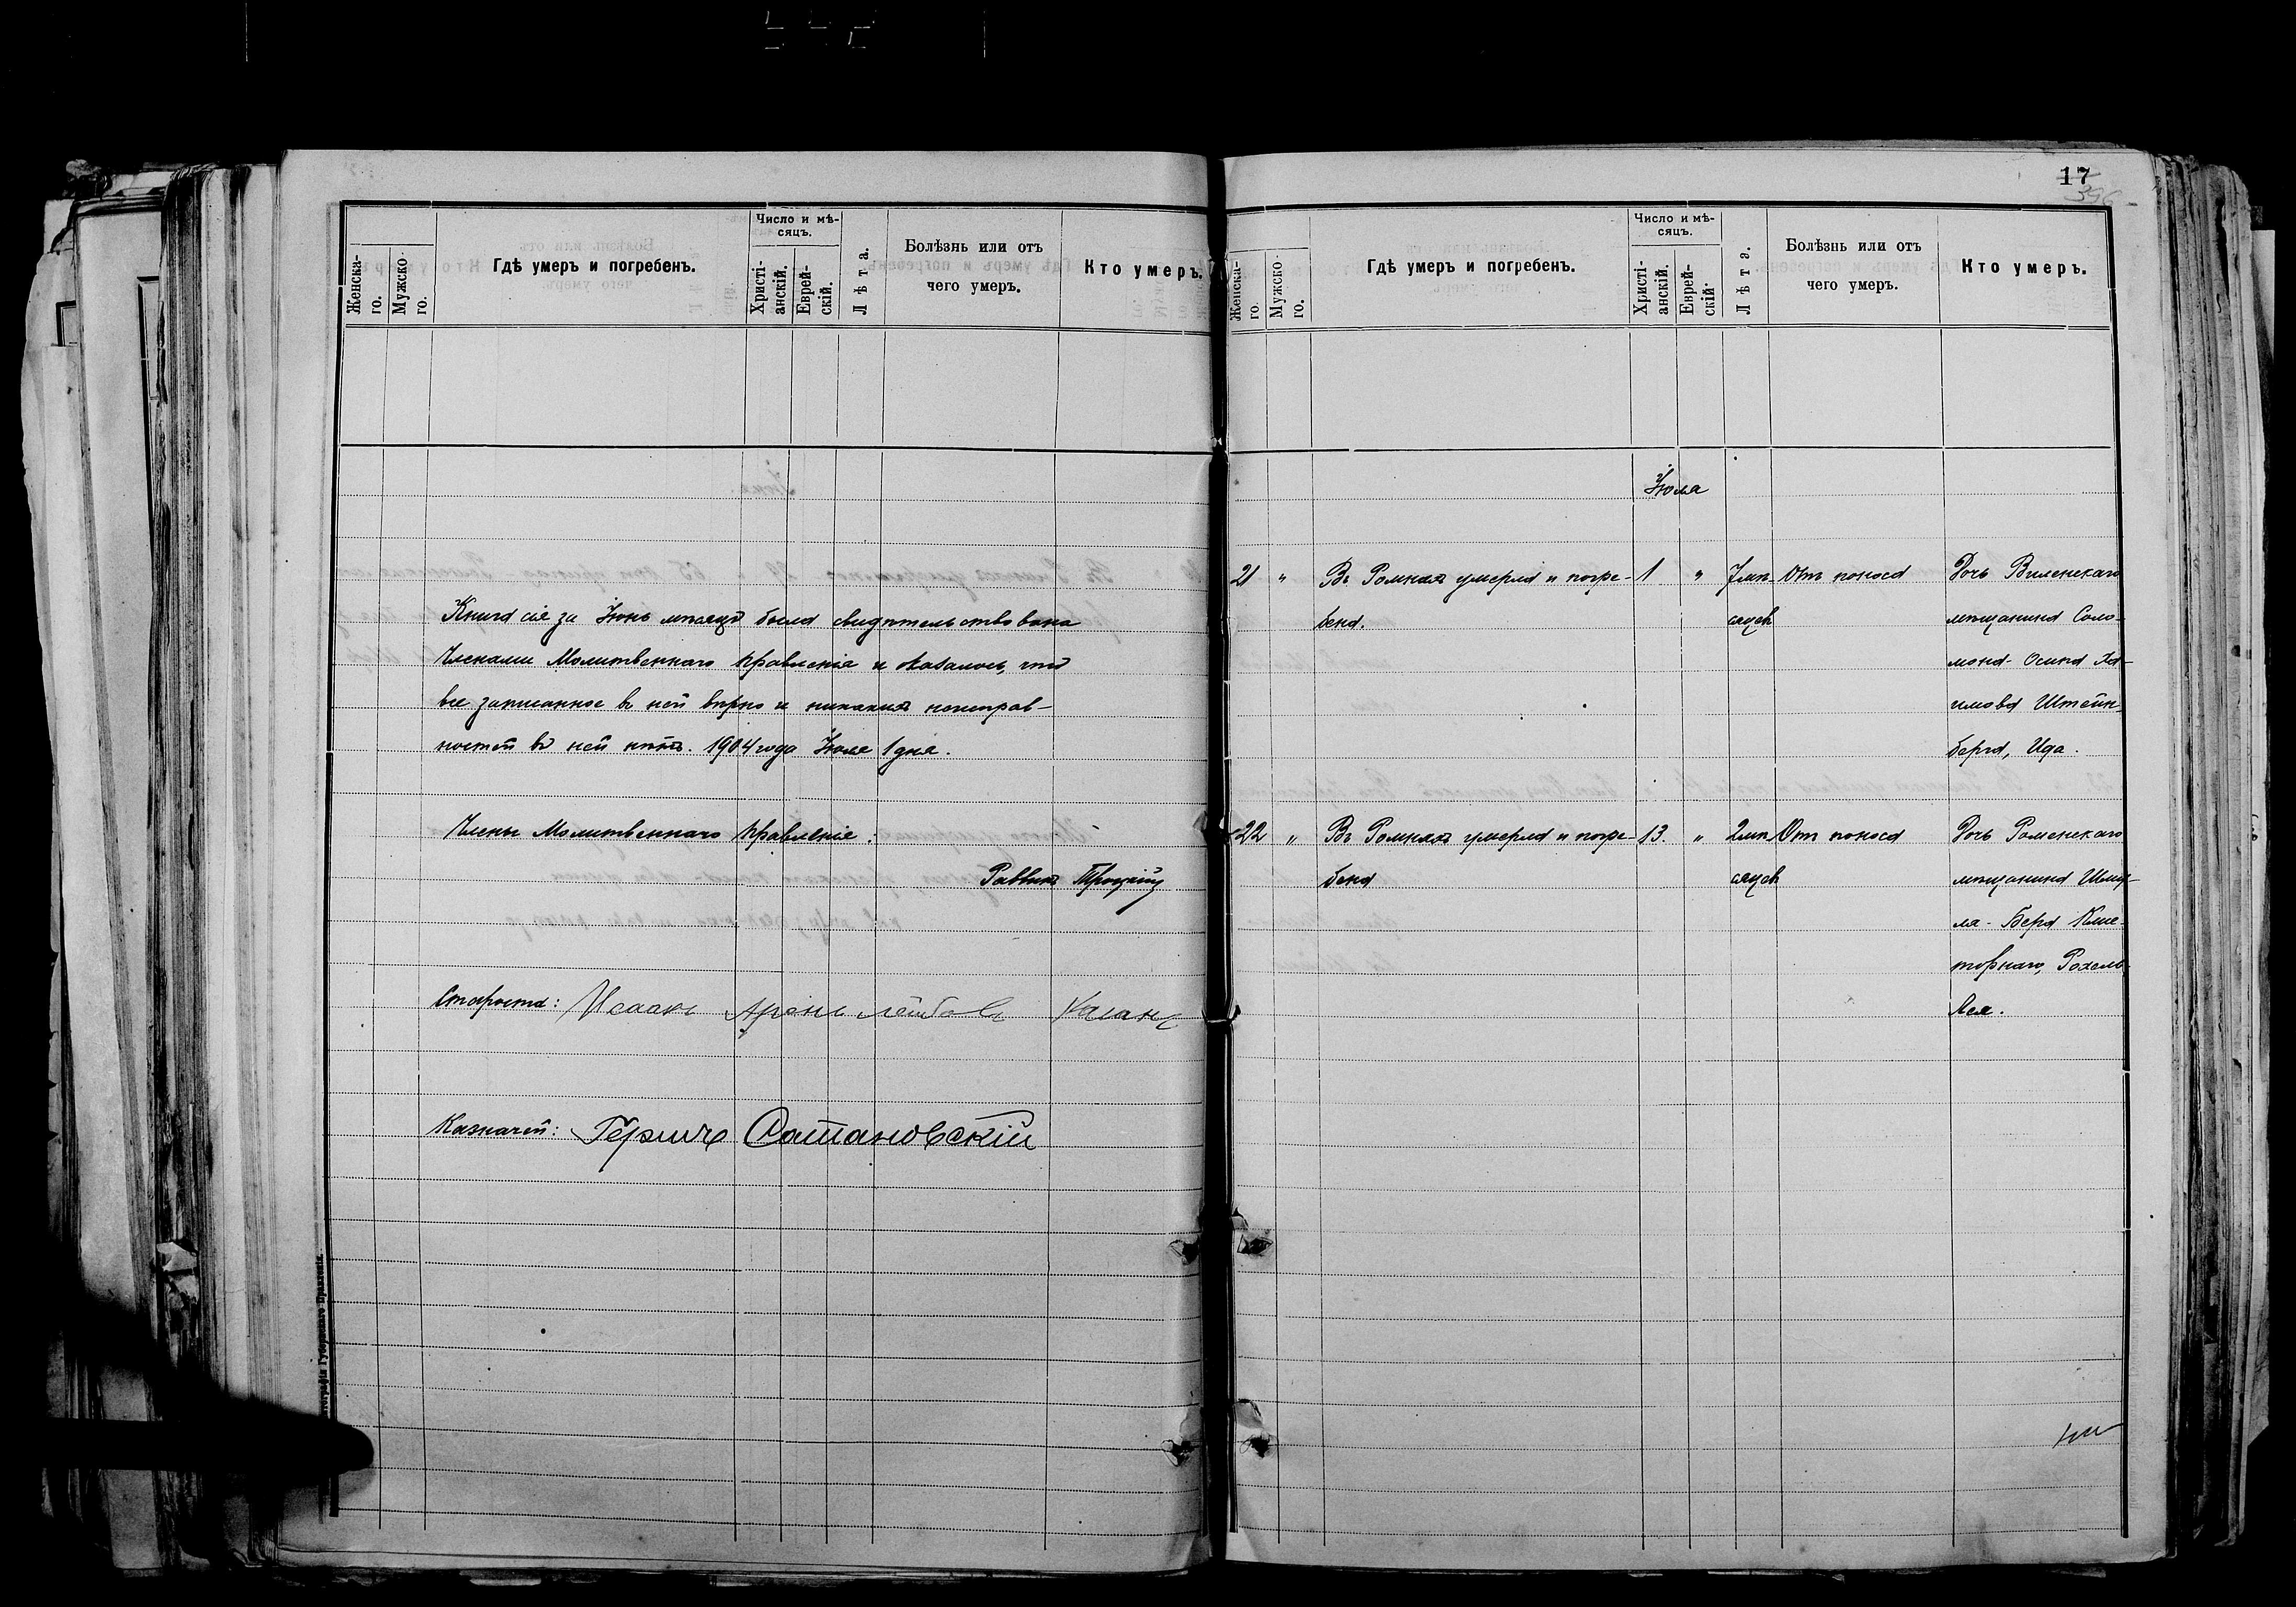 Женска-
го.
Мужско-
го.
Гдѣ умеръ и погребенъ.
Число и мѣ-
сяцъ.
Христі-
анскій.
Еврей-
скій.
Лѣта.
Болѣзнь или отъ
чего умеръ.
Кто умеръ.
Книга сія за Іюнь мѣсяцъ была свидѣтельствована
Членами Молитвеннаго Правленія и оказалось, что
все записанное въ ней вѣрно и никакихъ неисправ-
ностей въ ней нѣтъ. 1904 года Іюля 1 дня.
Члены Молитвеннаго Правленія:
Раввинъ
Староста: Исаакъ Аронъ Лейбовъ Каганъ
Казначей: Гершъ Сатановскій
17
396
Женска-
го.
Мужско-
го.
Гдѣ умеръ и погребенъ.
Число и мѣ-
сяцъ.
Христі-
анскій.
Еврей-
скій.
Лѣта.
Болѣзнь или отъ
чего умеръ.
Кто умеръ.
Іюля
21 " Въ Ромнахъ умерла и погре- 1 " 7 мѣ- Отъ поноса Дочь Виленскаго
бена. сяцевъ мѣщанина Соло-
мона-Осипа Ха-
имова Штейн-
берга, Ида.
22 " Въ Ромнахъ умерла и погре- 13. " 2 мѣ- Отъ поноса Дочь Роменскаго
бена сяцевъ мѣщанина Шму-
ля-Бера
Рохель-
Лея.